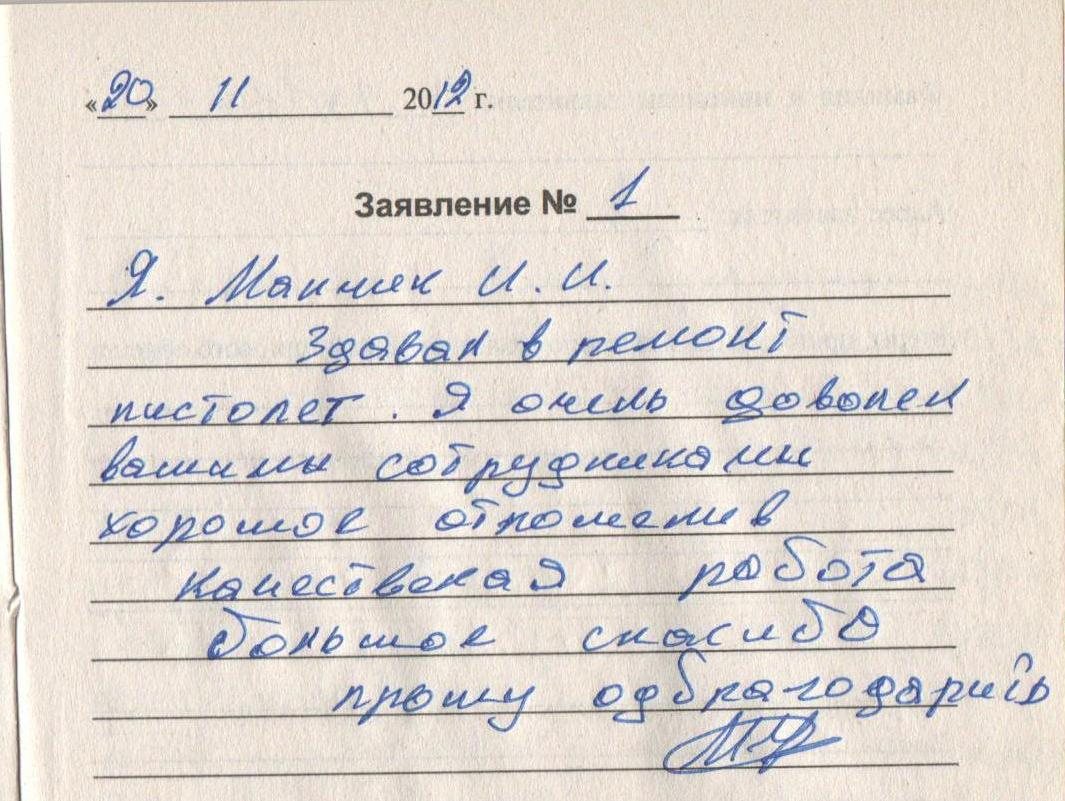 «20» 11 2012 г.
Заявление № 1
Я. И. И.
Здавал в ремонт
пистолет. Я очень доволен
вашими сотрудниками
хорошое отношение в
качествекая работа
большое спасибо
прошу одблагодарить